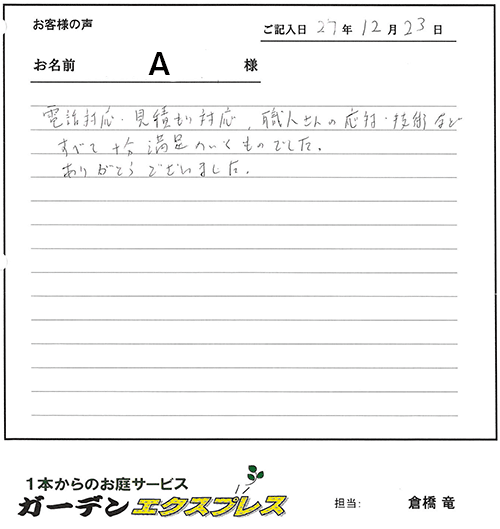 お客様の声
ご記入日 27年 12月 23日
お名前 A 様
電話対応・見積もり対応、職人さんの応対・技術など
すべて十分満足のいくものでした。
ありがとうございました。
1本からのお庭サービス
ガーデンエクスプレス
担当: 倉橋 竜